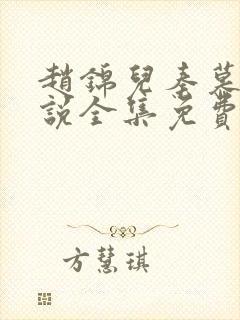 趙錦兒秦慕
說全集免費
方慧琪